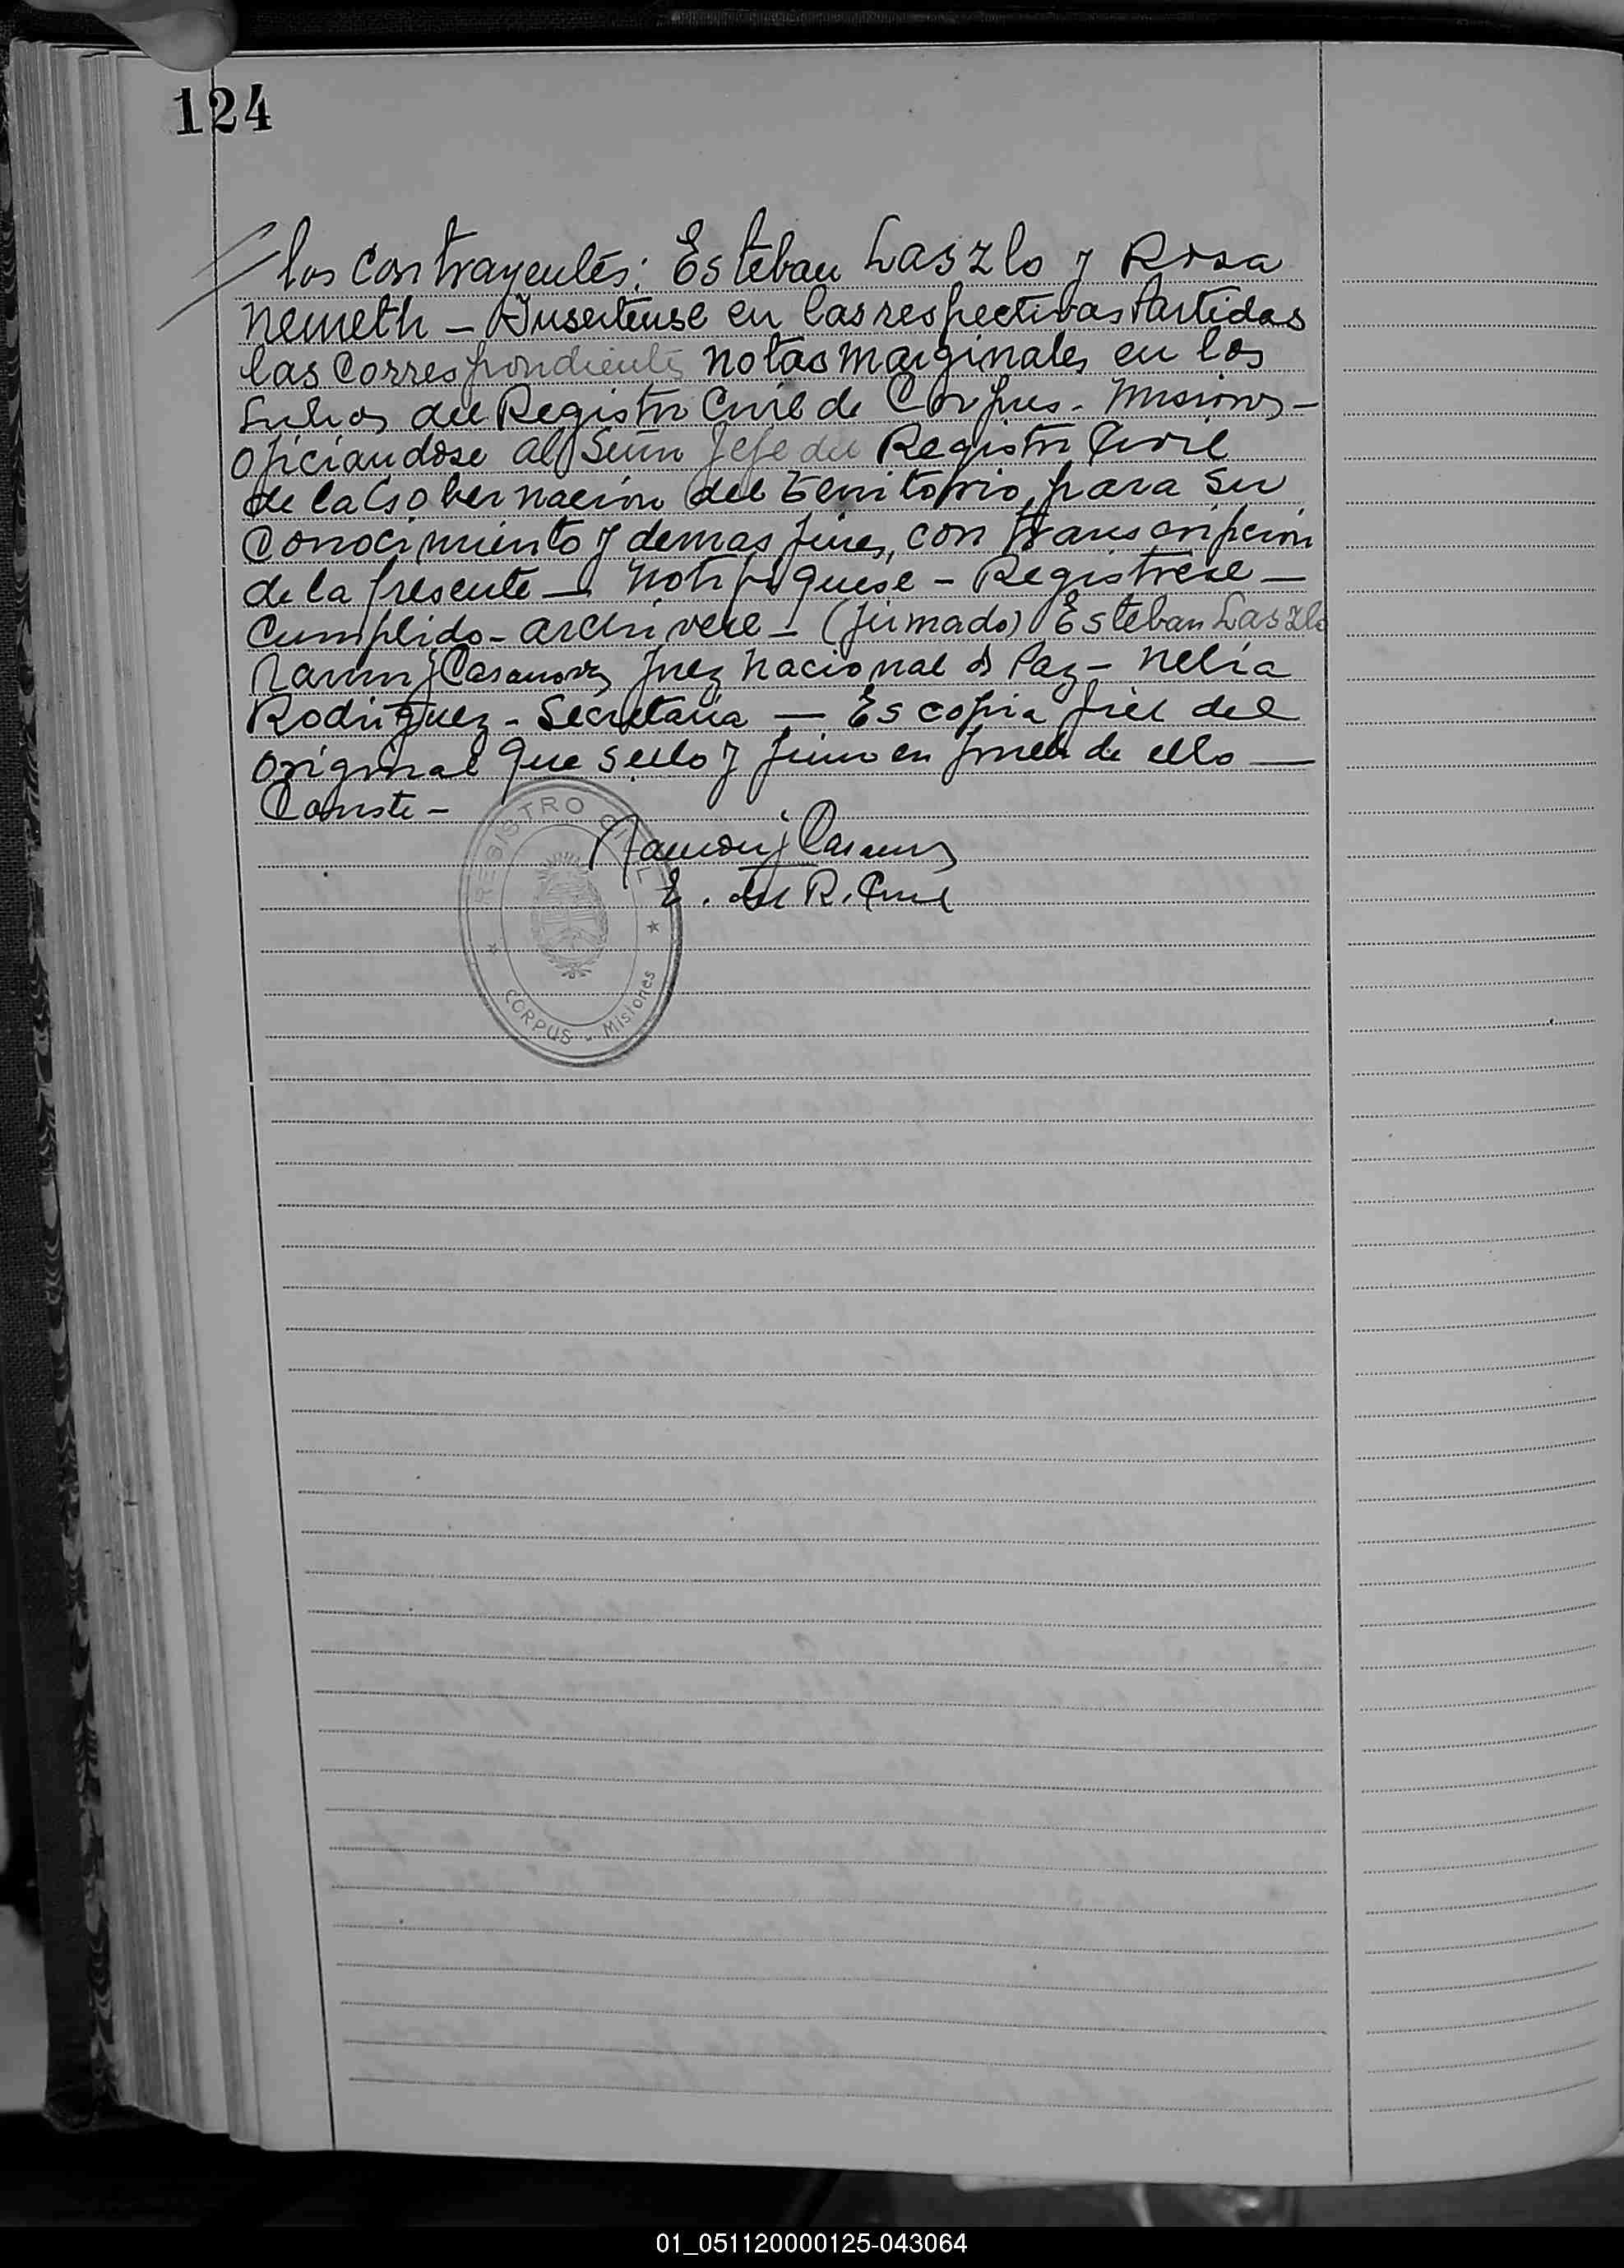 124
los Contrayentes: Esteban Laszlo y Rosa
Nemeth - Insertense en las respectivas Partidas
las Correspondientes notas marginales en los
Libros del Registro Civil de Corpus - Misiones -
Oficiandose al Señor Jefe del Registro Civil
de la Gobernación del Territorio, para su
Conocimiento y demas fines, con transcripción
de la presente - Notifíquese - Registrese -
Cumplido - archivese - (firmado) Esteban Laszlo
Ramon J Casanova Juez Nacional de Paz - Nelia
Rodriguez - Secretaria - Es copia fiel del
Original que sello y firmo en prueba de ello -
Conste -
Ramon J Casanova
E. del R. Civil
REGISTRO CIVIL
CORPUS - Misiones
01_051120000125-043064